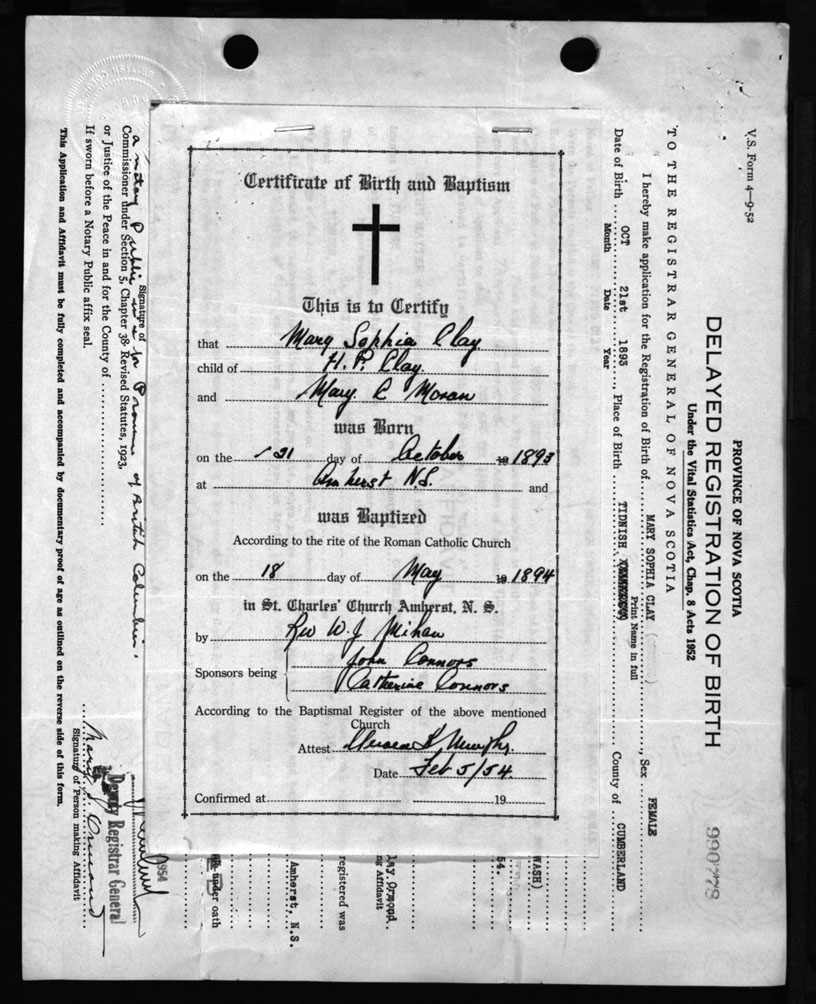 Certificate of Birth and Baptism
This is to Certify
that Mary Sophia Clay
child of H. P. Clay
and Mary C Moran
was Born
on the 21 day of October 19 1893
at Amherst N.S. and
was Baptized
According to the rite of the Roman Catholic Church
on the 18 day of May 19 1894
in St. Charles' Church Amherst, N. S.
by Rev W. J. Mihan
Sponsors being John Connors
Catherine Connors
According to the Baptismal Register of the above mentioned
Church
Attest Murphy
Date Feb 5/54
Confirmed at 19
V.S. Form 4-9-52
PROVINCE OF NOVA SCOTIA
DELAYED REGISTRATION OF BIRTH
990778
Under the Vital Statistics Act, Chap. 8 Acts 1952
TO THE REGISTRAR GENERAL OF NOVA SCOTIA
I hereby make application for the Registration of Birth of MARY SOPHIA CLAY, Sex FEMALE
Print Name in full
Date of Birth OCT 21st 1893 Place of Birth TIDNISH County of CUMBERLAND
Month Date Year
WASH)
54.
lay Ormond.
ng Affidavit
registered was
Amherst, N.S.
under oath
1954
Deputy Registrar General
Signature of
a notary Public in & for Province of British Columbia.
Commissioner under Section 5, Chapter 38 Revised Statutes, 1923.
or Justice of the Peace in and for the County of
If sworn before a Notary Public affix seal.
Mary S Ormond
Signature of Person making Affidavit
This Application and Affidavit must be fully completed and accompanied by documentary proof of age as outlined on the reverse side of this form.